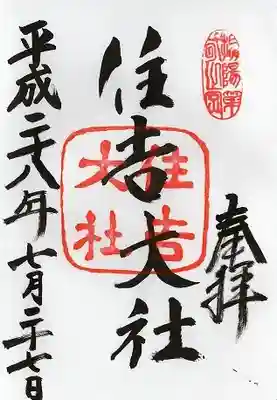 奉拝
住吉大社
住吉大社
平成二十八年七月二十七日